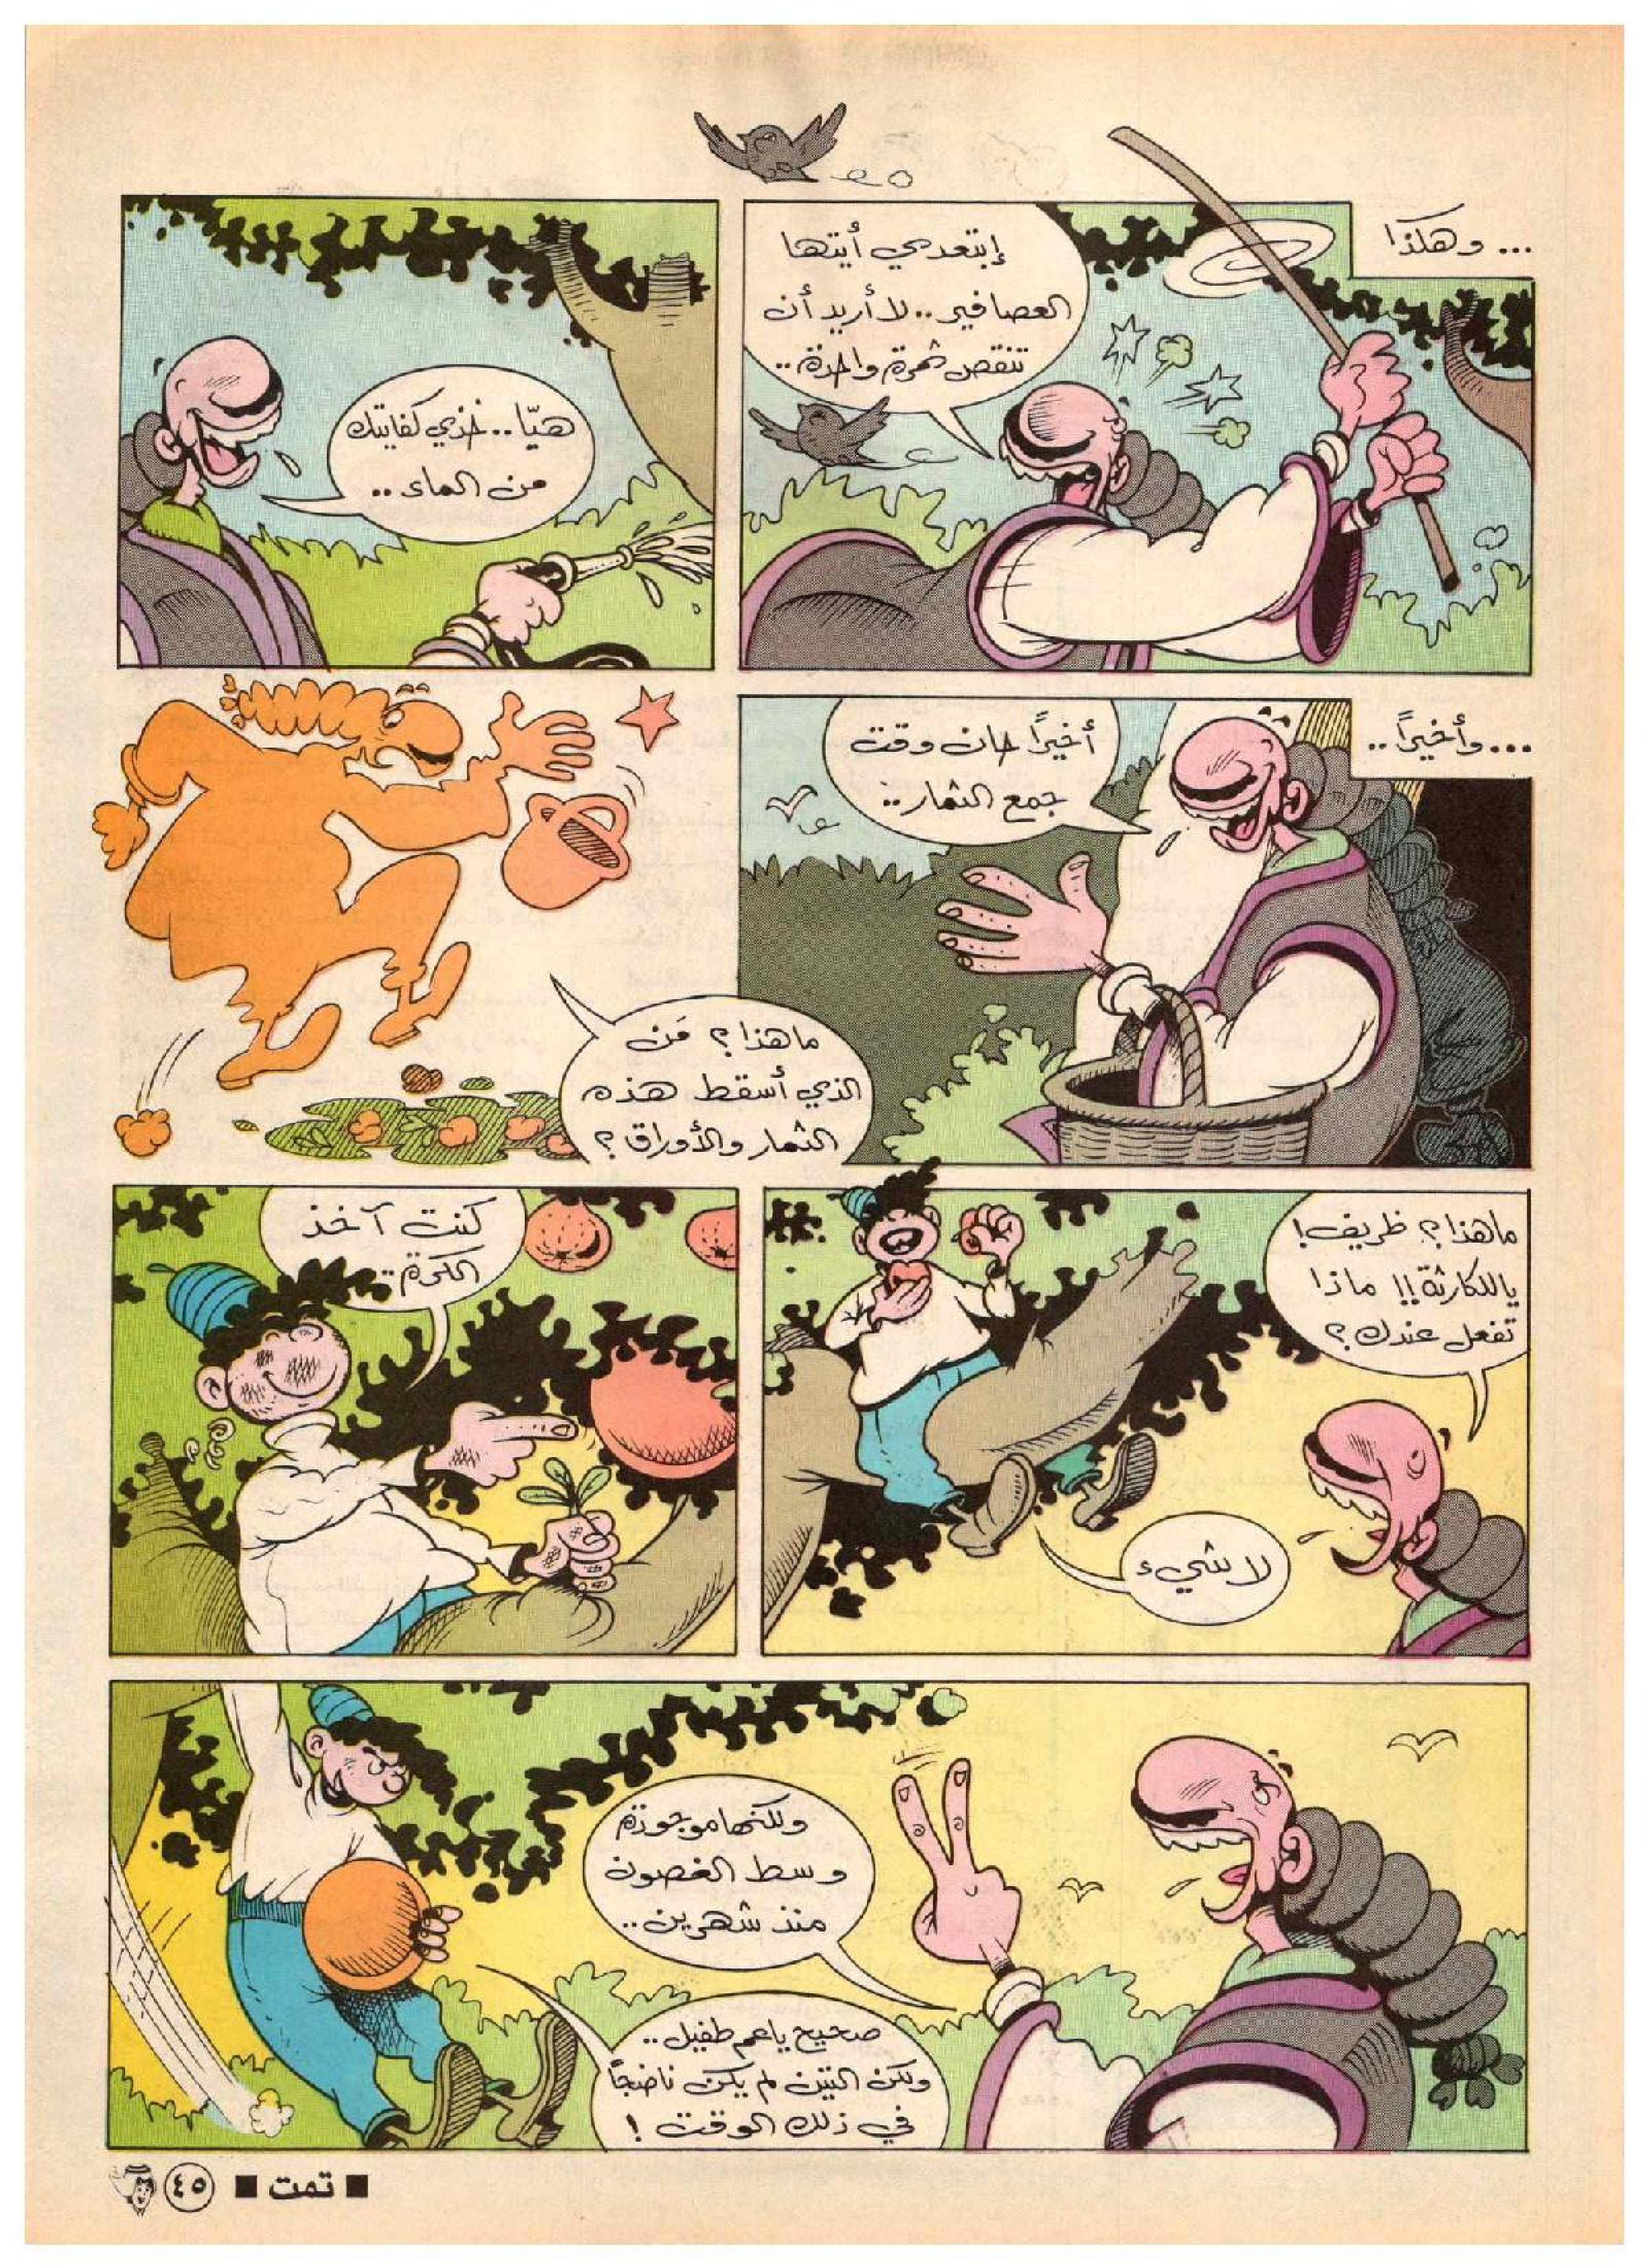 ... وهكذا
إبتعدي أيتها
العصافير.. لا أريد أن
تنقص ثمرة واحدة..
هيّا.. خذي كفايتك
من الماء..
... وأخيراً..
أخيراً حان وقت
جمع الثمار..
ما هذا؟ مَن
الذي أسقط هذه
الثمار والأوراق؟
ما هذا؟ ظريف!
ياللكارثة!! ماذا
تفعل عندك؟
لا شيء
كنت آخذ
الكرة..
ولكنها موجودة
وسط الغصون
منذ شهرين..
صحيح ياعم طفيل..
ولكن التين لم يكن ناضجاً
في ذلك الوقت!
■ تمت ■ ٤٥